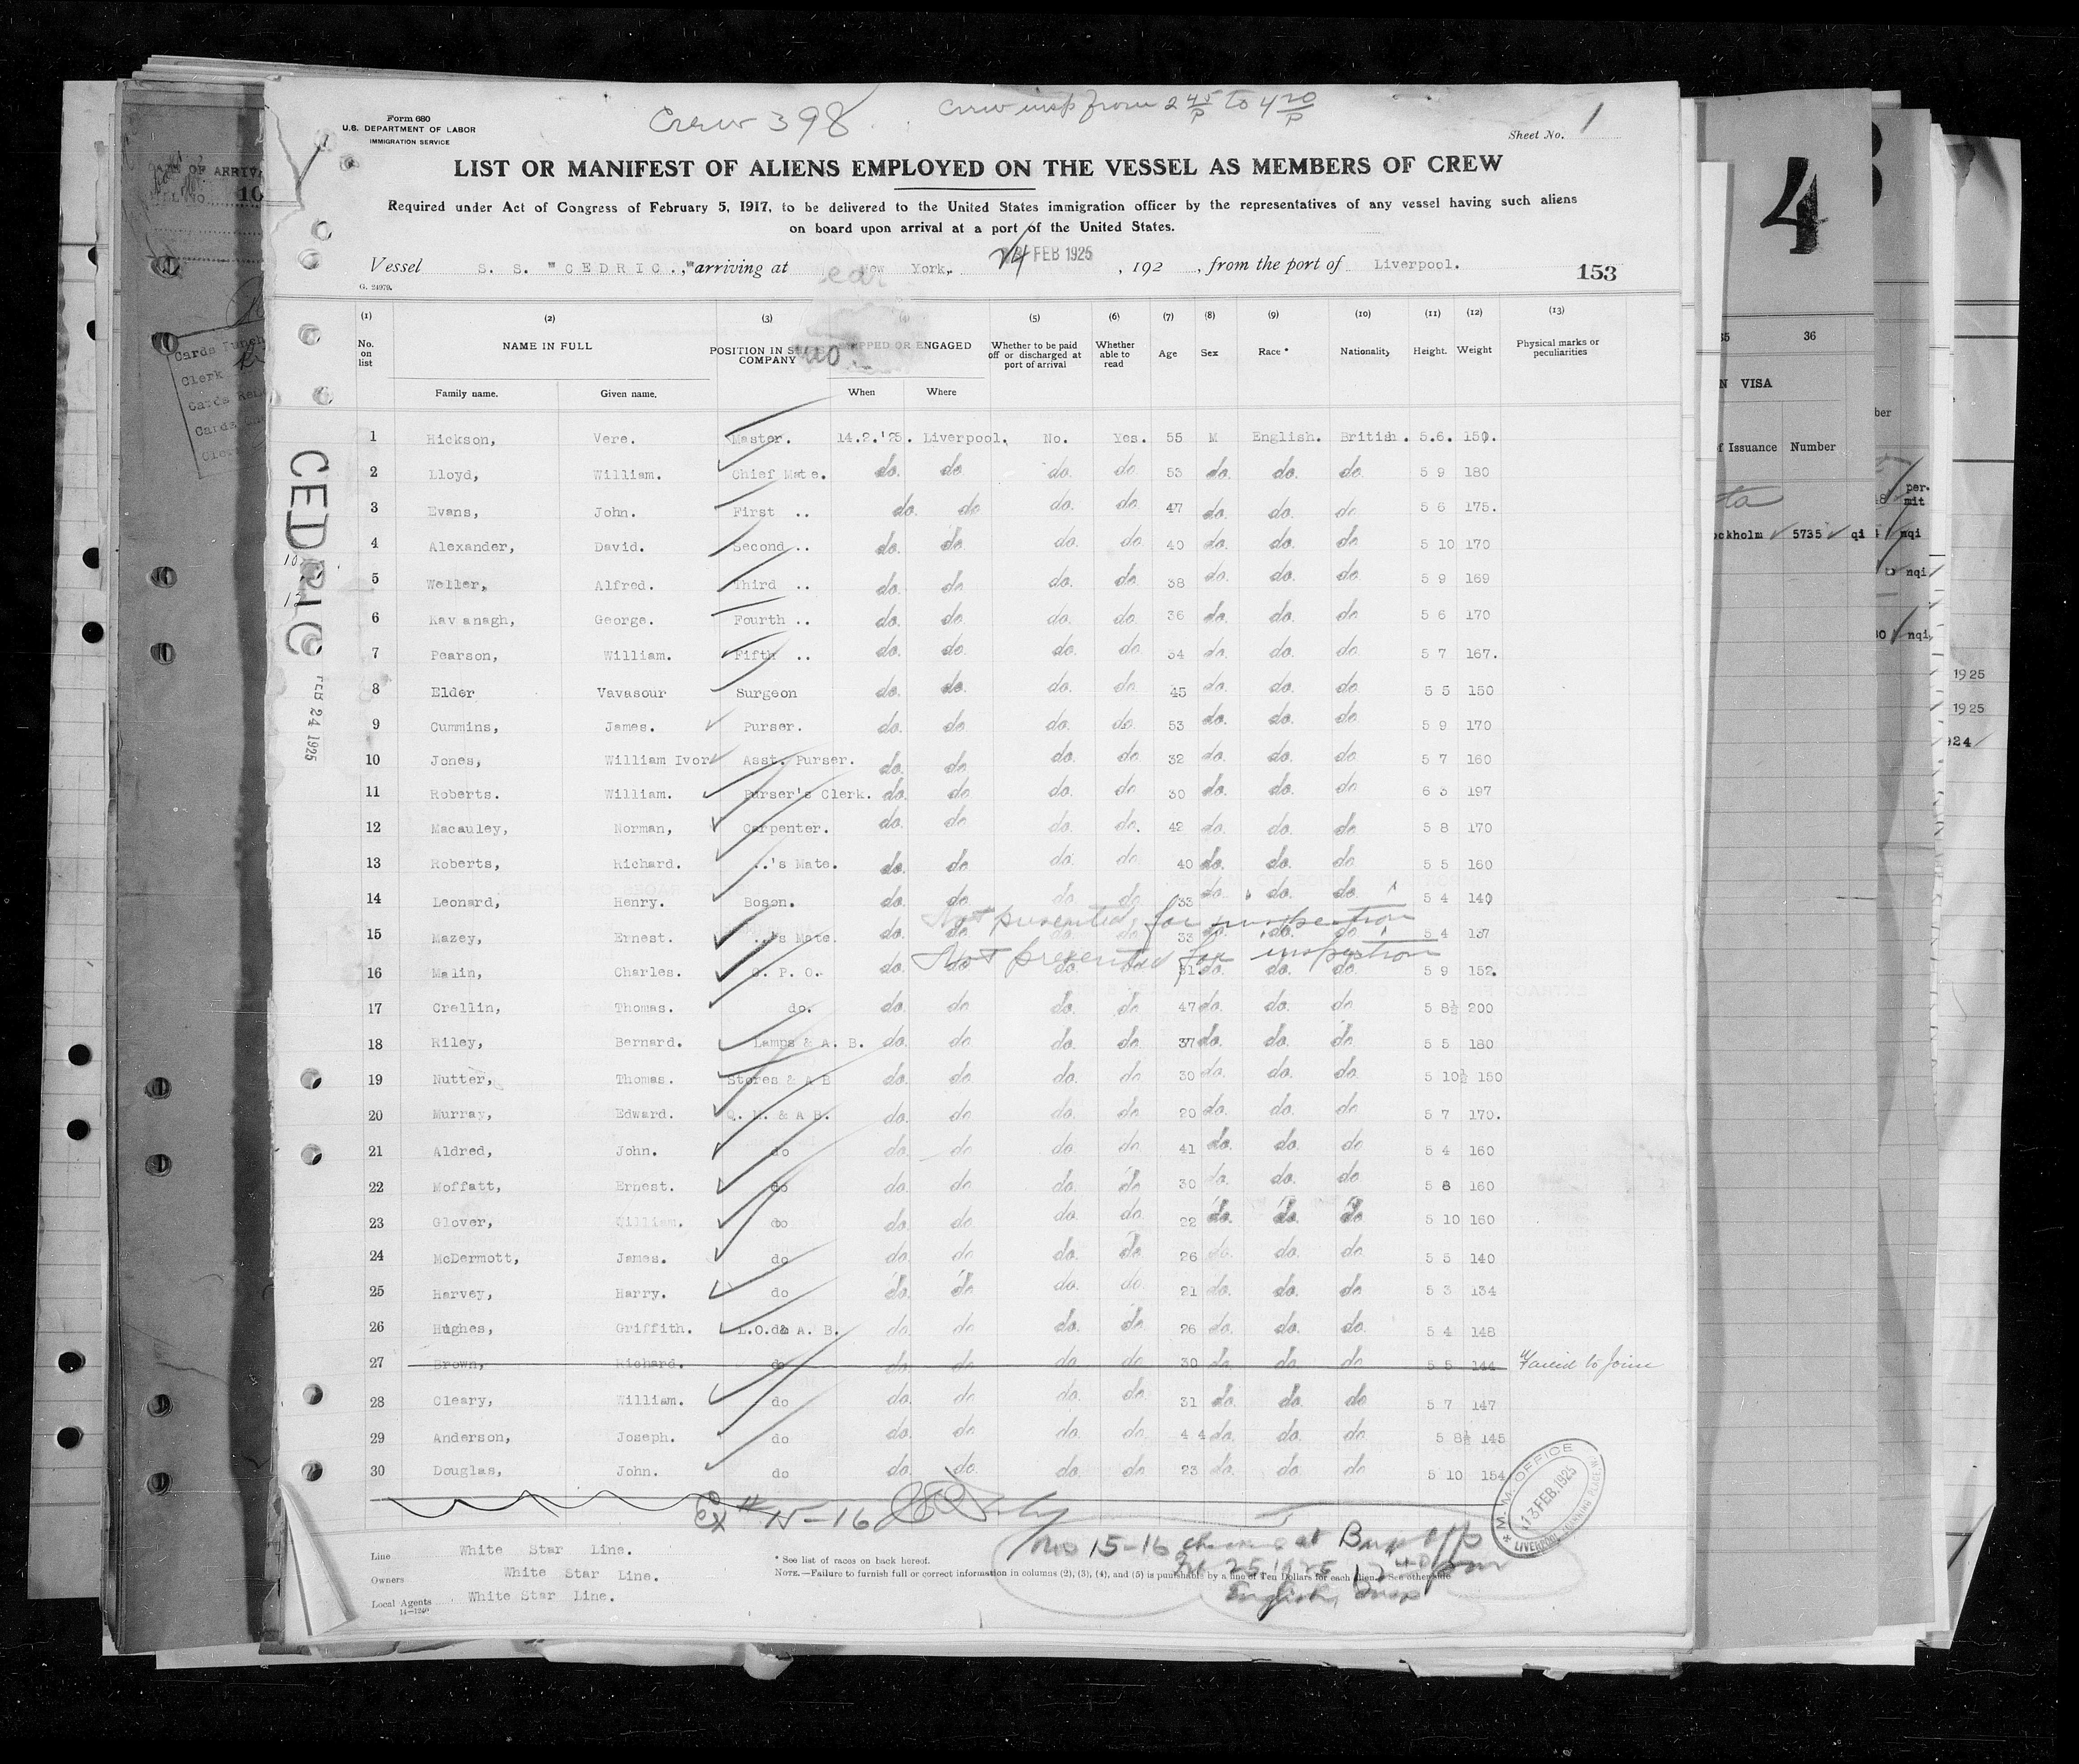 Crew 398
Crew insp from 2 45/P to 4 20/P
Form 680
U.S. DEPARTMENT OF LABOR
IMMIGRATION SERVICE
Sheet No. 1
LIST OR MANIFEST OF ALIENS EMPLOYED ON THE VESSEL AS MEMBERS OF CREW
Required under Act of Congress of February 5, 1917, to be delivered to the United States immigration officer by the representatives of any vessel having such aliens
on board upon arrival at a port of the United States.
Vessel S. S. "CEDRIC.," arriving at New York, 24 FEB 1925, 192 , from the port of Liverpool.
G. 24979.
153
(1) (2) (3) (4) (5) (6) (7) (8) (9) (10) (11) (12) (13)
No. on list NAME IN FULL POSITION IN COMPANY SHIPPED OR ENGAGED Whether to be paid off or discharged at port of arrival Whether able to read Age Sex Race * Nationality Height. Weight Physical marks or peculiarities
Family name. Given name. When Where
1 Hickson, Vere. Master. 14.2.'25. Liverpool. No. Yes. 55 M English. British. 5.6. 150.
2 Lloyd, William. Chief Mate. do. do do. do 53 do. do. do 5 9 180
3 Evans, John. First .. do. do do. do. 47 do. do. do 5 6 175.
4 Alexander, David. Second .. do. do. do. do 40 do. do. do 5 10 170
5 Weller, Alfred. Third .. do. do. do. do 38 do. do. do 5 9 169
6 Kavanagh, George. Fourth .. do. do. do. do. 36 do. do. do 5 6 170
7 Pearson, William. Fifth .. do. do. do. do. 34 do. do. do 5 7 167.
8 Elder Vavasour Surgeon do. do. do. do 45 do. do. do 5 5 150
9 Cummins, James. Purser. do. do do. do. 53 do. do. do 5 9 170
10 Jones, William Ivor Asst. Purser. do. do do. do 32 do. do. do 5 7 160
11 Roberts. William. Purser's Clerk. do. do do. do 30 do. do. do 6 3 197
12 Macauley, Norman, Carpenter. do. do do. do. 42 do. do. do 5 8 170
13 Roberts, Richard. ..'s Mate. do. do do. do 40 do. do. do 5 5 160
14 Leonard, Henry. Boson. do. do do. do 33 do. do. do 5 4 140
Not presented for inspection
15 Mazey, Ernest. ..'s Mate. do. do do. do 33 do. do. do 5 4 137
Not presented for inspection
16 Malin, Charles. Q. P. O. do. do do. do 31 do. do. do 5 9 152.
17 Crellin, Thomas. do. do. do do. do 47 do. do. do 5 8½ 200
18 Riley, Bernard. Lamps & A. B. do. do do. do. 37 do. do. do 5 5 180
19 Nutter, Thomas. Stores & A B do. do do. do 30 do. do. do 5 10½ 150
20 Murray, Edward. Q. M. & A B. do. do do. do 20 do. do. do 5 7 170.
21 Aldred, John. do do. do do. do 41 do. do. do 5 4 160
22 Moffatt, Ernest. do do. do do. do 30 do. do. do 5 8 160
23 Glover, William. do do. do do. do 22 do. do. do 5 10 160
24 McDermott, James. do do. do do. do 26 do. do. do 5 5 140
25 Harvey, Harry. do do. do do. do. 21 do. do. do 5 3 134
26 Hughes, Griffith. L.O. & A. B. do. do do. do 26 do. do. do 5 4 148
27 Brown, Richard. do do. do do. do 30 do. do. do 5 5 144 Failed to Join
28 Cleary, William. do do. do do. do. 31 do. do. do 5 7 147
29 Anderson, Joseph. do do. do do. do. 44 do. do. do 5 8½ 145
30 Douglas, John. do do. do. do. do 23 do. do. do 5 10 154
Ex # 15-16
M. M. OFFICE
13 FEB. 1925
LIVERPOOL
Nos 15-16 at
25 1925 pm
English
Line White Star Line.
Owners White Star Line.
Local Agents White Star Line.
14-1240
* See list of races on back hereof.
NOTE.—Failure to furnish full or correct information in columns (2), (3), (4), and (5) is punishable by a fine of Ten Dollars for each alien. See other side
CEDRIC
FEB 24 1925
OF ARRIVA
10
Cards Punch
Clerk
Cards
Cards
4
36
N VISA
f Issuance Number
ockholm 5735 qi
per-
mit
nqi
nqi
nqi
1925
1925
924